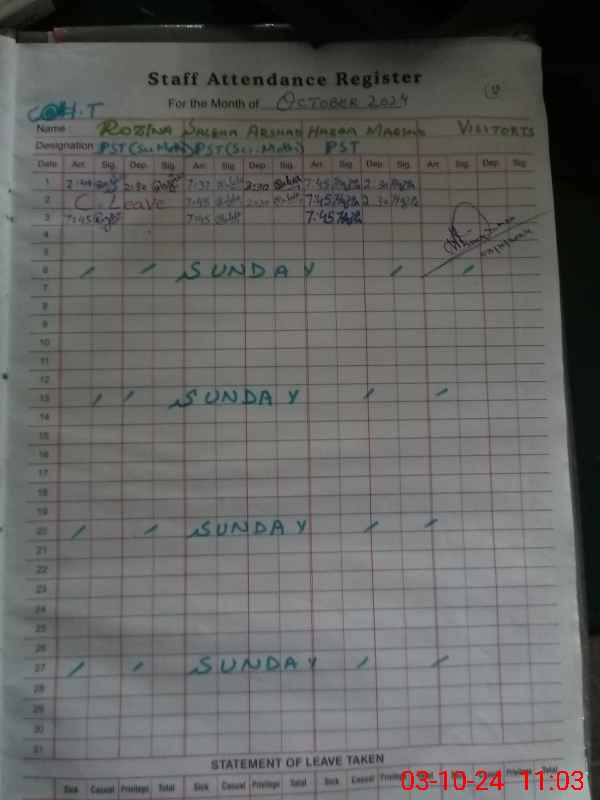 Staff Attendance Register
For the Month of OCTOBER 2024
Name ROZINA SALBHA ARSHAD HAFSA MARSHO VISITORTS
Designation PST(Sci.Math) PST(Sci.Math) PST
Date Arr. Sig. Dep. Sig. Arr. Sig. Dep. Sig. Arr. Sig. Dep. Sig. Arr. Sig. Dep. Sig.
1 2:30 7:45 2:30
2 C. Leave 7:45 2:30 7:45 2:30
3 7:45 7:45 7:45
4
5
6 SUNDAY
7
8
9
10
11
12
13 SUNDAY
14
15
16
17
18
19
20 SUNDAY
21
22
23
24
25
26
27 SUNDAY
28
29
30
31
STATEMENT OF LEAVE TAKEN
Sick Casual Privilege Total Sick Casual Privilege Total Sick Casual Privilege Total Sick Casual Privilege Total
03-10-24 11:03